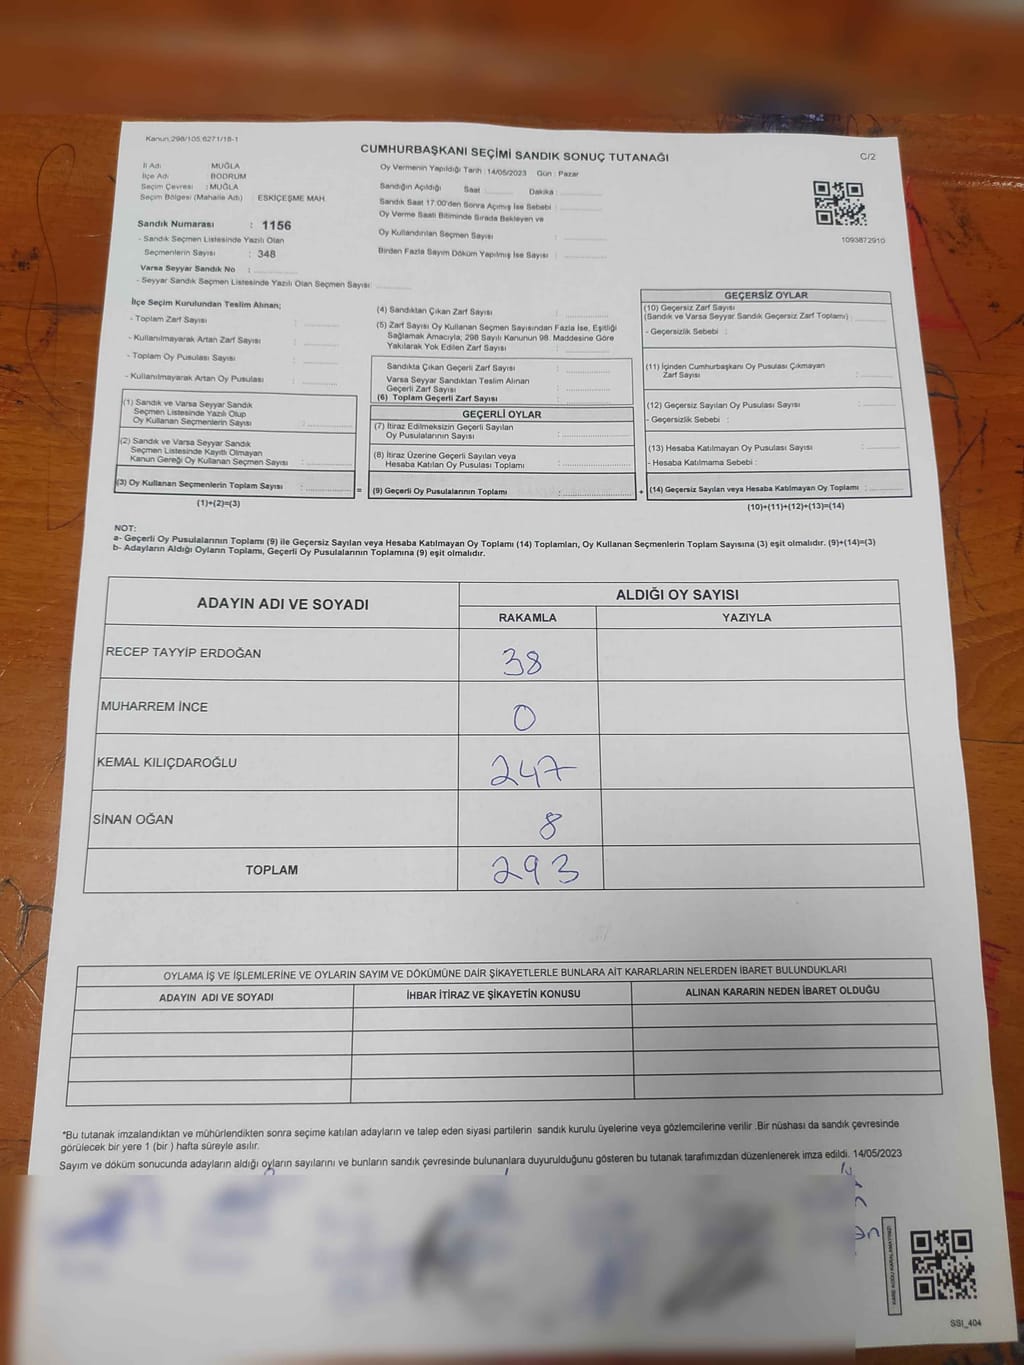 Kanun:298/105,6271/18-1
CUMHURBAŞKANI SEÇİMİ SANDIK SONUÇ TUTANAĞI
C/2
İl Adı MUĞLA
İlçe Adı BODRUM
Seçim Çevresi : MUĞLA
Seçim Bölgesi (Mahalle Adı) : ESKİÇEŞME MAH.
Sandık Numarası : 1156
- Sandık Seçmen Listesinde Yazılı Olan
Seçmenlerin Sayısı : 348
Varsa Seyyar Sandık No :
- Seyyar Sandık Seçmen Listesinde Yazılı Olan Seçmen Sayısı:
Oy Vermenin Yapıldığı Tarih : 14/05/2023 Gün : Pazar
Sandığın Açıldığı Saat Dakika :
Sandık Saat 17:00'den Sonra Açımış İse Sebebi :
Oy Verme Saati Bitiminde Sırada Bekleyen ve
Oy Kullandırılan Seçmen Sayısı :
Birden Fazla Sayım Döküm Yapılmış İse Sayısı :
1093872910
İlçe Seçim Kurulundan Teslim Alınan;
- Toplam Zarf Sayısı :
- Kullanılmayarak Artan Zarf Sayısı :
- Toplam Oy Pusulası Sayısı :
- Kullanılmayarak Artan Oy Pusulası :
(1) Sandık ve Varsa Seyyar Sandık
Seçmen Listesinde Yazılı Olup
Oy Kullanan Seçmenlerin Sayısı :
(2) Sandık ve Varsa Seyyar Sandık
Seçmen Listesinde Kayıtlı Olmayan
Kanun Gereği Oy Kullanan Seçmen Sayısı :
(3) Oy Kullanan Seçmenlerin Toplam Sayısı :
=
(1)+(2)=(3)
(4) Sandıktan Çıkan Zarf Sayısı :
(5) Zarf Sayısı Oy Kullanan Seçmen Sayısından Fazla İse, Eşitliği
Sağlamak Amacıyla; 298 Sayılı Kanunun 98. Maddesine Göre
Yakılarak Yok Edilen Zarf Sayısı :
Sandıkta Çıkan Geçerli Zarf Sayısı :
Varsa Seyyar Sandıktan Teslim Alınan
Geçerli Zarf Sayısı :
(6) Toplam Geçerli Zarf Sayısı :
GEÇERLİ OYLAR
(7) İtiraz Edilmeksizin Geçerli Sayılan
Oy Pusulalarının Sayısı :
(8) İtiraz Üzerine Geçerli Sayılan veya
Hesaba Katılan Oy Pusulası Toplamı :
(9) Geçerli Oy Pusulalarının Toplamı :
+
GEÇERSİZ OYLAR
(10) Geçersiz Zarf Sayısı
(Sandık ve Varsa Seyyar Sandık Geçersiz Zarf Toplamı) :
- Geçersizlik Sebebi :
(11) İçinden Cumhurbaşkanı Oy Pusulası Çıkmayan
Zarf Sayısı :
(12) Geçersiz Sayılan Oy Pusulası Sayısı :
- Geçersizlik Sebebi :
(13) Hesaba Katılmayan Oy Pusulası Sayısı :
- Hesaba Katılmama Sebebi :
(14) Geçersiz Sayılan veya Hesaba Katılmayan Oy Toplamı :
(10)+(11)+(12)+(13)=(14)
NOT:
a- Geçerli Oy Pusulalarının Toplamı (9) ile Geçersiz Sayılan veya Hesaba Katılmayan Oy Toplamı (14) Toplamları, Oy Kullanan Seçmenlerin Toplam Sayısına (3) eşit olmalıdır. (9)+(14)=(3)
b- Adayların Aldığı Oyların Toplamı, Geçerli Oy Pusulalarının Toplamına (9) eşit olmalıdır.
ADAYIN ADI VE SOYADI ALDIĞI OY SAYISI
RAKAMLA YAZIYLA
RECEP TAYYİP ERDOĞAN 38
MUHARREM İNCE 0
KEMAL KILIÇDAROĞLU 247
SİNAN OĞAN 8
TOPLAM 293
OYLAMA İŞ VE İŞLEMLERİNE VE OYLARIN SAYIM VE DÖKÜMÜNE DAİR ŞİKAYETLERLE BUNLARA AİT KARARLARIN NELERDEN İBARET BULUNDUKLARI
ADAYIN ADI VE SOYADI İHBAR İTİRAZ VE ŞİKAYETİN KONUSU ALINAN KARARIN NEDEN İBARET OLDUĞU
*Bu tutanak imzalandıktan ve mühürlendikten sonra seçime katılan adayların ve talep eden siyasi partilerin sandık kurulu üyelerine veya gözlemcilerine verilir .Bir nüshası da sandık çevresinde
görülecek bir yere 1 (bir ) hafta süreyle asılır.
Sayım ve döküm sonucunda adayların aldığı oyların sayılarını ve bunların sandık çevresinde bulunanlara duyurulduğunu gösteren bu tutanak tarafımızdan düzenlenerek imza edildi. 14/05/2023
SSI_404